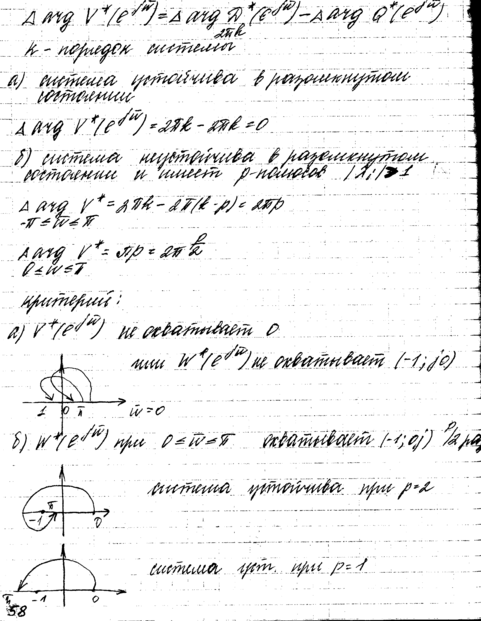 Δ arg V*(e^{jω̄}) = Δ arg D*(e^{jω̄}) − Δ arg Q*(e^{jω̄})
2πk
k - порядок системы
а) система устойчива в разомкнутом
состоянии
Δ arg V*(e^{jω̄}) = 2πk − 2πk = 0
б) система неустойчива в разомкнутом
состоянии и имеет p-полюсов |z_i| > 1
Δ arg V* = 2πk − 2π(k−p) = 2πp
−π ≤ ω̄ ≤ π
Δ arg V* = πp = 2π p/2
0 ≤ ω̄ ≤ π
критерий:
а) V*(e^{jω̄}) не охватывает 0
или W*(e^{jω̄}) не охватывает (−1; j0)
1 0 π ω̄=0
б) W*(e^{jω̄}) при 0 ≤ ω̄ ≤ π охватывает (−1; 0j) p/2 раз
система устойчива при p=2
−1 π 0
система уст. при p=1
π −1 0
58